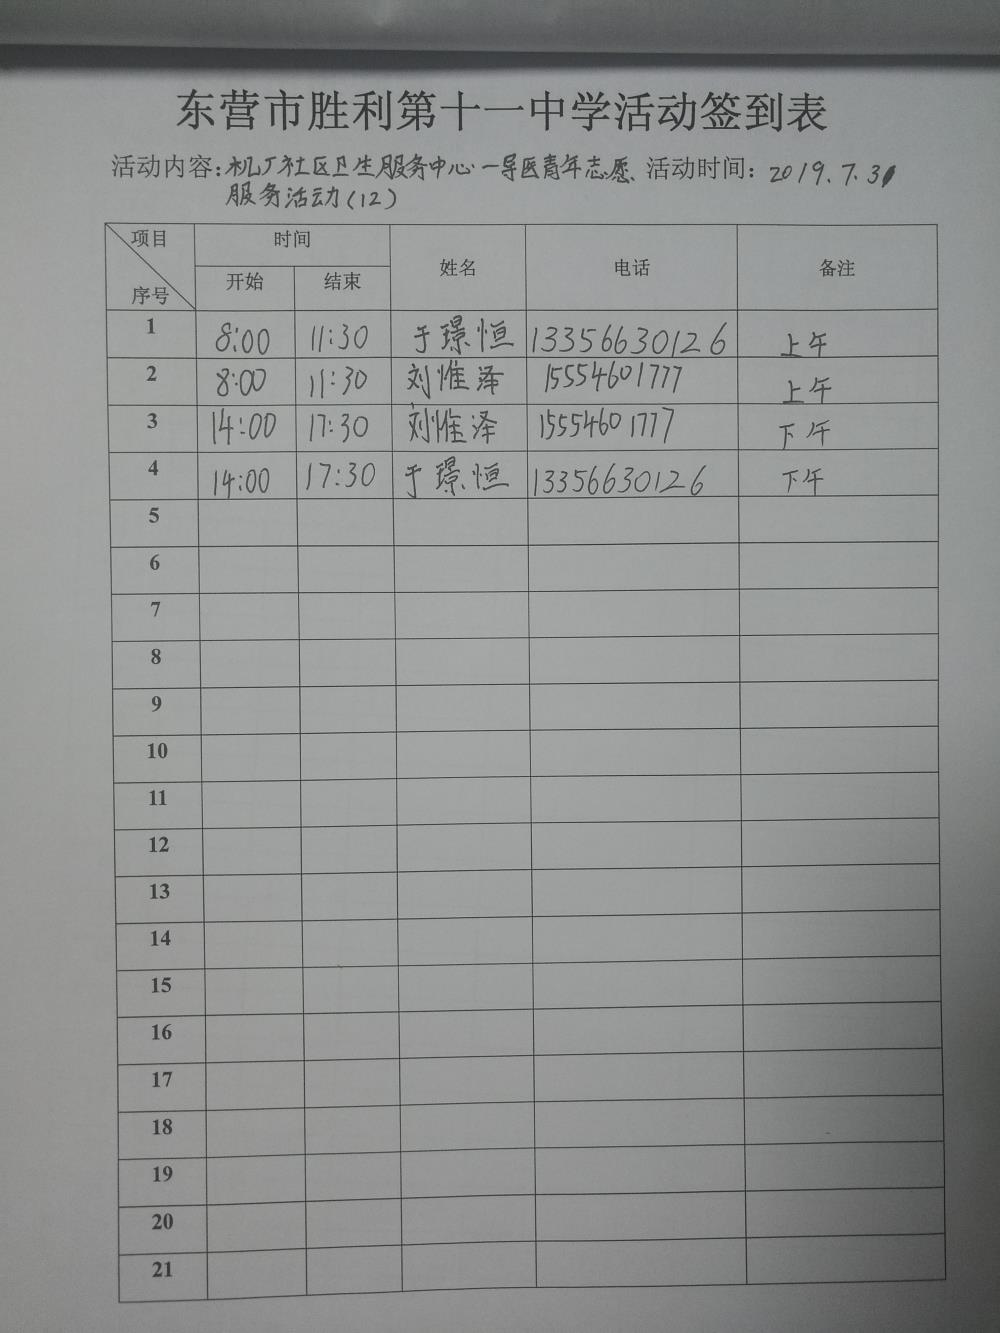 东营市胜利第十一中学活动签到表
活动内容：机厂社区卫生服务中心一导医青年志愿 活动时间：2019.7.31
服务活动(12)
项目 时间 姓名 电话 备注
序号 开始 结束
1 8:00 11:30 于璟恒 13356630126 上午
2 8:00 11:30 刘惟泽 15554601777 上午
3 14:00 17:30 刘惟泽 15554601777 下午
4 14:00 17:30 于璟恒 13356630126 下午
5
6
7
8
9
10
11
12
13
14
15
16
17
18
19
20
21